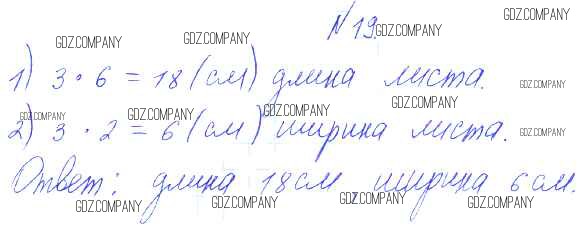 N 19.
1) 3 · 6 = 18 (см) длина листа.
2) 3 · 2 = 6 (см) ширина листа.
Ответ: длина 18 см, ширина 6 см.
GDZ.COMPANY
GDZ.COMPANY
GDZ.COMPANY
GDZ.COMPANY
GDZ.COMPANY
GDZ.COMPANY
GDZ.COMPANY
GDZ.COMPANY
GDZ.COMPANY
GDZ.COMPANY
GDZ.COMPANY
GDZ.COMPANY
GDZ.COMPANY
GDZ.COMPANY